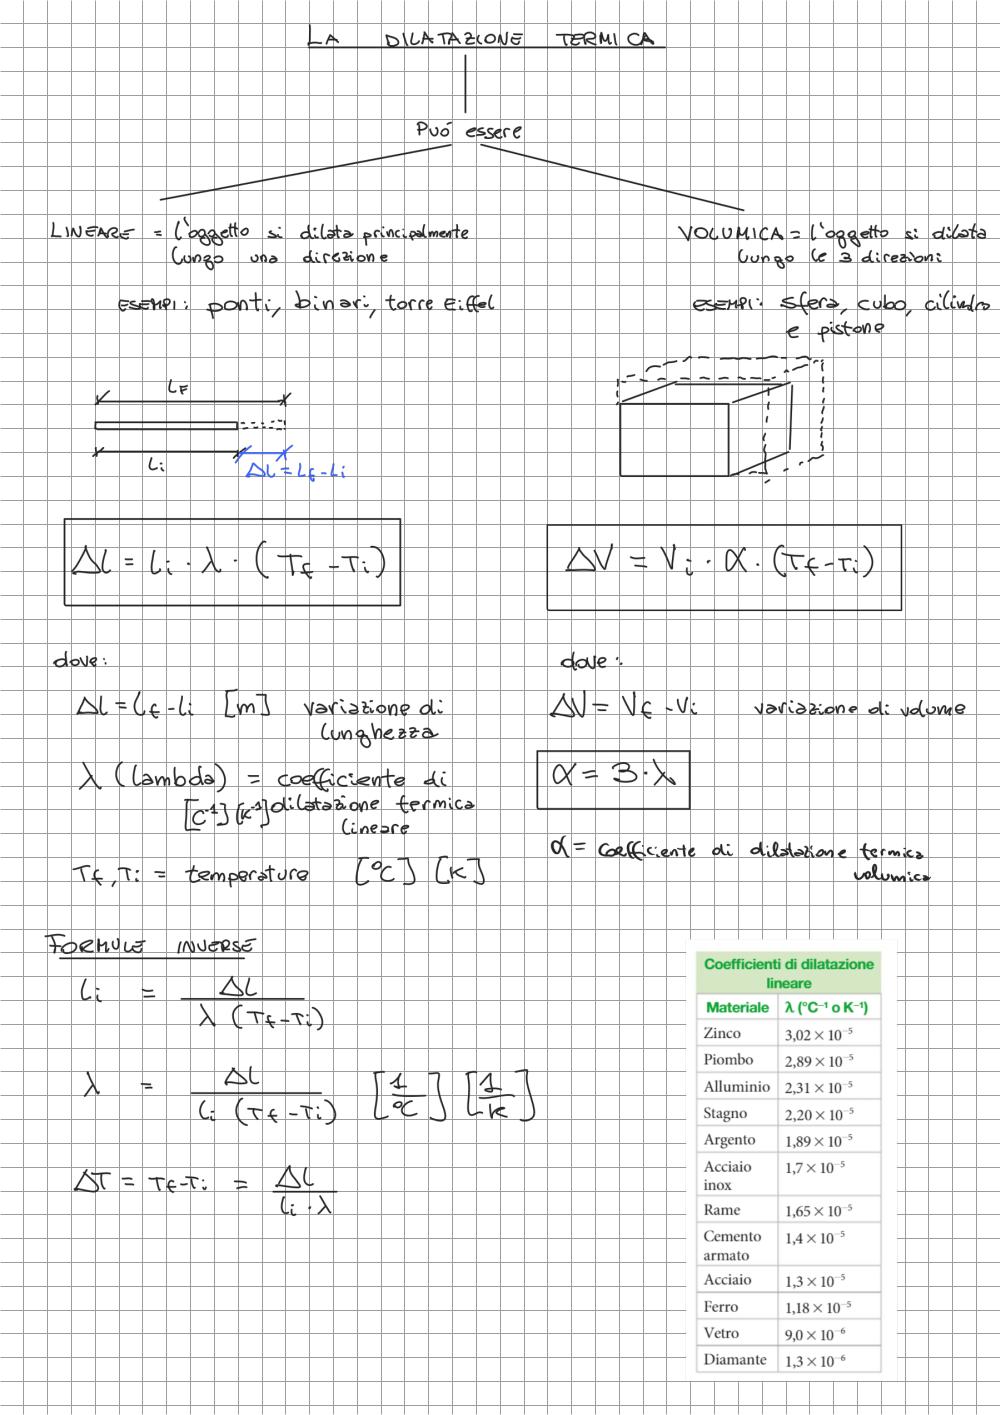 LA DILATAZIONE TERMICA
Può essere
LINEARE = l'oggetto si dilata principalmente
lungo una direzione
ESEMPI: ponti, binari, torre Eiffel
VOLUMICA = l'oggetto si dilata
lungo le 3 direzioni
ESEMPI: sfera, cubo, cilindro
e pistone
LF
Li
ΔL = Lf - Li
ΔL = Li · λ · (Tf - Ti)
ΔV = Vi · α · (Tf - Ti)
dove:
ΔL = Lf - Li [m] variazione di
lunghezza
λ (lambda) = coefficiente di
[C⁻¹] [K⁻¹] dilatazione termica
lineare
Tf, Ti = temperature [°C] [K]
dove:
ΔV = Vf - Vi variazione di volume
α = 3 · λ
α = coefficiente di dilatazione termica
volumica
FORMULE INVERSE
Li = ΔL / λ (Tf - Ti)
λ = ΔL / Li (Tf - Ti) [1/°C] [1/K]
ΔT = Tf - Ti = ΔL / Li · λ
Coefficienti di dilatazione
lineare
Materiale λ (°C⁻¹ o K⁻¹)
Zinco 3,02 × 10⁻⁵
Piombo 2,89 × 10⁻⁵
Alluminio 2,31 × 10⁻⁵
Stagno 2,20 × 10⁻⁵
Argento 1,89 × 10⁻⁵
Acciaio 1,7 × 10⁻⁵
inox
Rame 1,65 × 10⁻⁵
Cemento 1,4 × 10⁻⁵
armato
Acciaio 1,3 × 10⁻⁵
Ferro 1,18 × 10⁻⁵
Vetro 9,0 × 10⁻⁶
Diamante 1,3 × 10⁻⁶